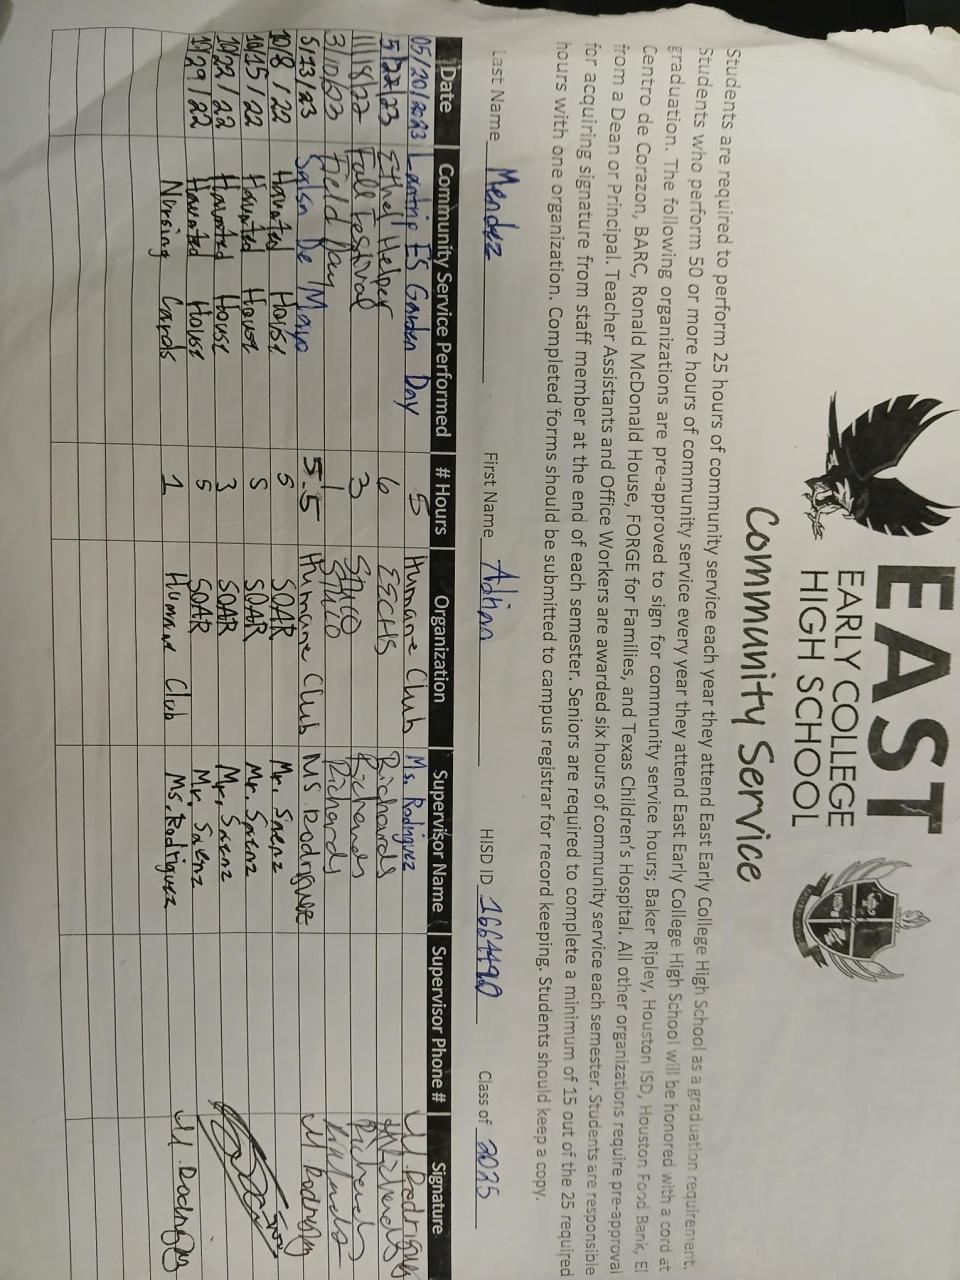 EAST
EARLY COLLEGE
HIGH SCHOOL
Community Service
Students are required to perform 25 hours of community service each year they attend East Early College High School as a graduation requirement.
Students who perform 50 or more hours of community service every year they attend East Early College High School will be honored with a cord at
graduation. The following organizations are pre-approved to sign for community service hours; Baker Ripley, Houston ISD, Houston Food Bank, El
Centro de Corazon, BARC, Ronald McDonald House, FORGE for Families, and Texas Children's Hospital. All other organizations require pre-approval
from a Dean or Principal. Teacher Assistants and Office Workers are awarded six hours of community service each semester. Students are responsible
for acquiring signature from staff member at the end of each semester. Seniors are required to complete a minimum of 15 out of the 25 required
hours with one organization. Completed forms should be submitted to campus registrar for record keeping. Students should keep a copy.
Last Name Mendez First Name Adrian HISD ID 1664490 Class of 2025
Date Community Service Performed # Hours Organization Supervisor Name Supervisor Phone # Signature
05/20/2023 Lantrip ES Garden Day 5 Humane Club Ms. Rodriguez M. Rodriguez
5/22/23 Ethel Helper 6 EECHS Richards Richards
11/18/22 Fall Festival 3 Richards Richards
3/10/23 Field Day 1 Richards Richards
5/13/23 Salsa De Mayo 5.5 Humane Club MS. Rodriguez M. Rodriguez
10/8/22 Haunted House 5 SOAR Mr. Saenz
10/15/22 Haunted House 5 SOAR Mr. Saenz
10/22/22 Haunted House 3 SOAR Mr. Saenz
10/29/22 Haunted House 5 SOAR Mr. Saenz
Nursing Cards 1 Humane Club Ms. Rodriguez M. Rodriguez